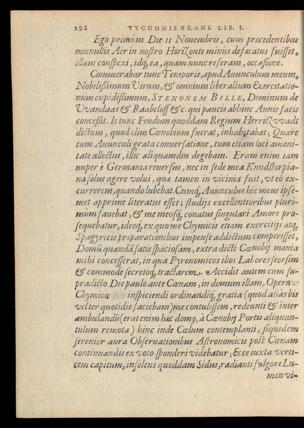 298 TYCHONIS BRAHE LIB. I.
Ego primum Die 11 Novembris, cum præcedentibus
nonnullis Aër in nostro Horizonte minus defæcatus fuisset,
illam conspexi, idq, ea, quam nunc referam, occasione.
Commorabar tunc Temporis, apud Avunculum meum,
Nobilissimum Virum, & omnium liberalium Exercitatio-
num cupidissimum, STENONEM BILLE, Dominum de
Vvandaas & Raabelöff &c. qui paucis abhinc Annis fato
concessit. Is tunc Feudum quoddam Regium Herritzvvadt
dictum, quod olim Cœnobium fuerat, inhabitabat; Quare
tum Avunculi grata conversatione, tum etiam loci amæni-
tate allectus, illic aliquamdiu degebam. Eram enim tam
nuper è Germania reversus, nec in sede mea Knudstorpia-
na solus agere volui, qua tamen in vicinia fuit, vt eò ex-
currerem, quando lubebat. Cumq, Avunculus hic meus ipse-
met apprime literatus esset; studijs excellentioribus pluri-
mum favebat, & me meosq, conatus singulari Amore pro-
sequebatur, idcoq, ex quo me Chymicis etiam exercitijs atq,
Spagyricis præparationibus impense addictum comperisset,
Domū quandā satis spaciosam, extra dicti Cœnobij mænia
mihi concesserat, in qua Pyronomicos illos Labores seorsim
& commode secretoq, tractarem. Accidit autem cum su-
pradicto Die paulo ante Cœnam, in domum illam, Opera
Chymica inspiciendi ordinandiq, gratia (quod alias bis
vel ter quotidie faciebam) me contulissem, redeunti & inter
ambulandū (erat enim hæc domo, à Cœnobij Portis aliquan-
tulum remota) hinc inde Cœlum contemplanti, siquidem
serenior aura Observationibus Astronomicis post Cœnam
continuandis ex voto sponderi videbatur; Ecce iuxta verti-
cem capitum, insolens quoddam Sidus, radianti fulgore Lu-
men vi-